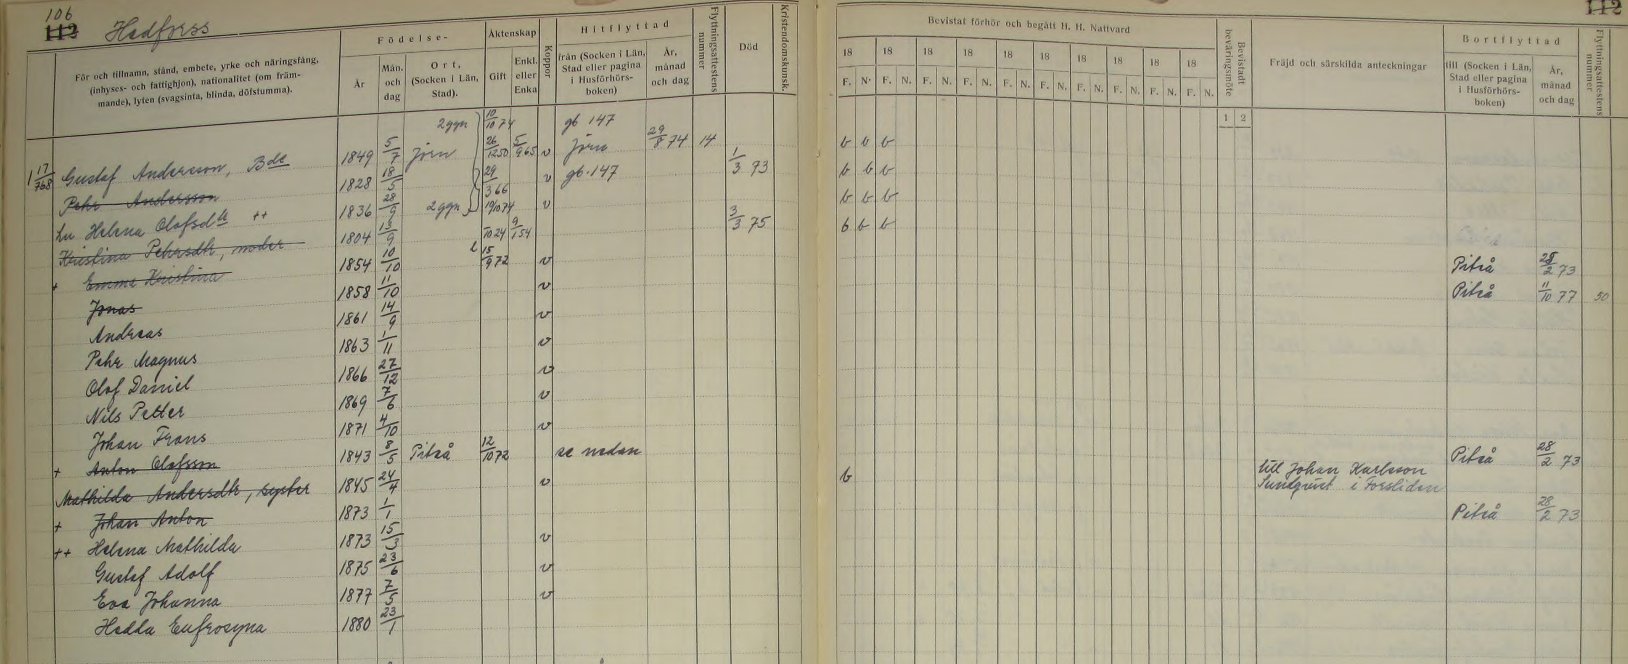 106
112 Hedfors 112
För och tillnamn, stånd, embete, yrke och näringsfång,
(inhyses- och fattighjon), nationalitet (om främ-
mande), lyten (svagsinta, blinda, döfstumma).
Födelse-
År Mån. och dag Ort, (Socken i Län, Stad).
Äktenskap
Gift Enkl. eller Enka
Koppor
Hitflyttad
från (Socken i Län, Stad eller pagina i Husförhörs-boken) År, månad och dag
Flyttningsattestens nummer
Död
Kristendomskunsk.
Bevistat förhör och begått H. H. Nattvard
18 18 18 18 18 18 18 18 18
F. N. F. N. F. N. F. N. F. N. F. N. F. N. F. N. F. N.
Bevistadt beväringsmöte
1 2
Fräjd och särskilda anteckningar
Bortflyttad
till (Socken i Län, Stad eller pagina i Husförhörs-boken) År, månad och dag
Flyttningsattestens nummer
2 ggn 10/10 74 gb 147
Gustaf Andersson, Bde 1849 5/7 Jörn 26/12 50 5/9 65 v Jörn 29/8 74 14 b b b
Pehr Andersson 1828 18/5 29/3 66 v gb. 147 1/3 93 b b b
Lu Helena Olofsdtr ++ 1836 28/9 2 ggn 10/10 74 v b b b
Kristina Pehrsdtr, moder 1804 13/9 /10 24 9/1 54 3/3 75 b b b
+ Emma Kristina 1854 10/10 15/9 72 v Piteå 28/2 73
Jonas 1858 11/10 v Piteå 11/10 77 50
Andreas 1861 14/9 v
Pehr Magnus 1863 1/11 v
Olof Daniel 1866 27/12 v
Nils Petter 1869 7/6 v
Johan Frans 1871 4/10 v
+ Anton Olofsson 1843 8/5 Piteå 12/10 72 se nedan Piteå 28/2 73
Mathilda Andersdtr, syster 1845 24/4 v b till Johan Karlsson
Sundqvist i Forsliden
+ Johan Anton 1873 1/1 Piteå 28/2 73
++ Helena Mathilda 1873 15/3 v
Gustaf Adolf 1875 23/6 v
Eva Johanna 1877 7/5 v
Hedda Eufrosyna 1880 23/1